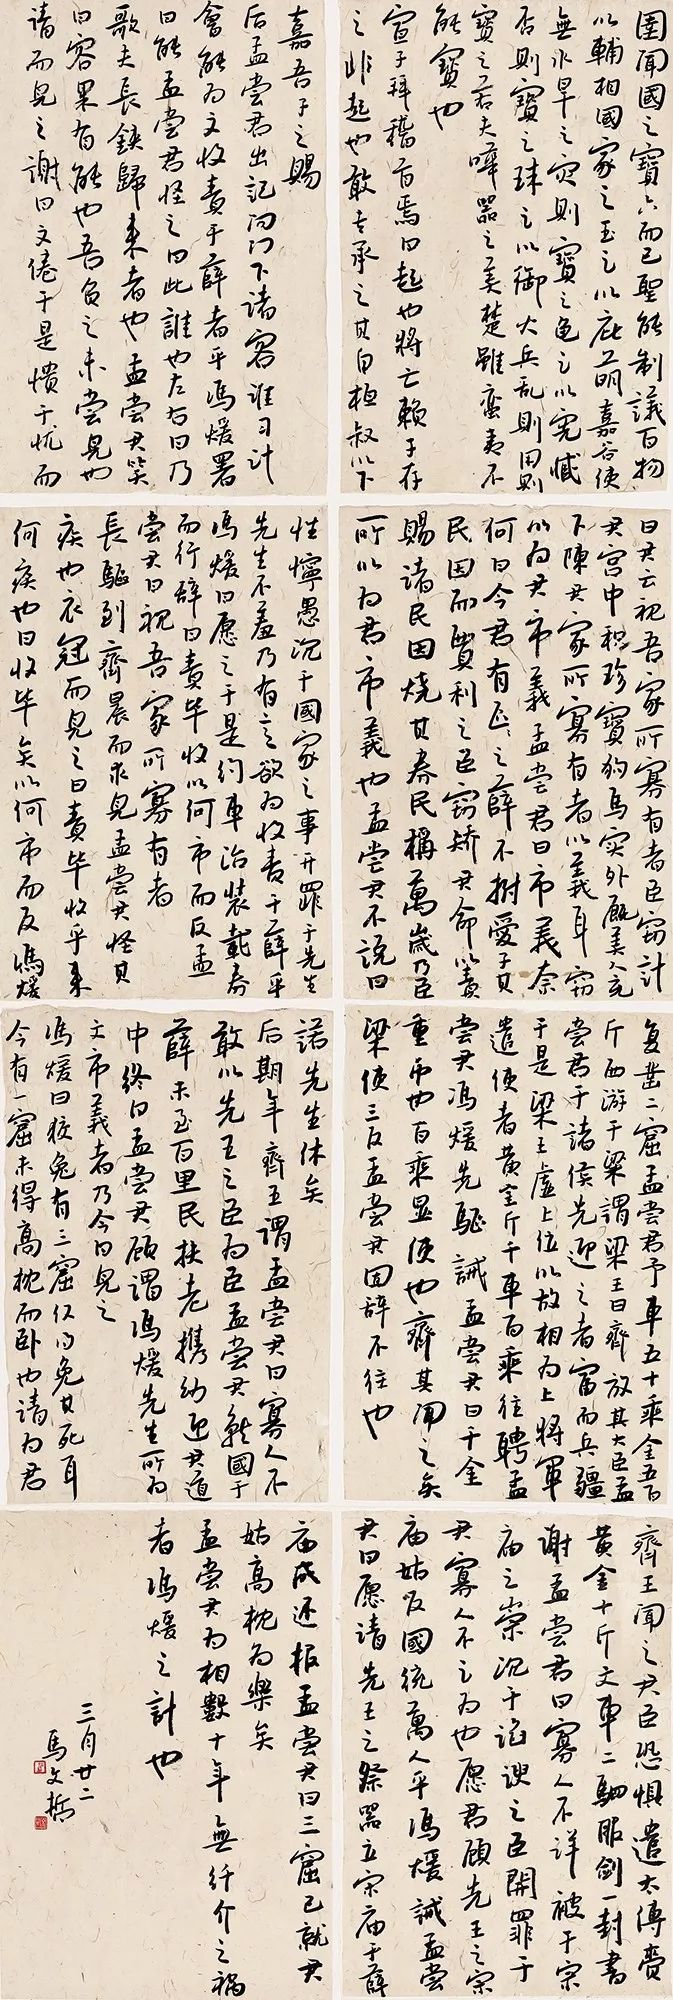 圉聞國之寶六而已聖能制議百物
以輔相國家之玉之以庇蔭嘉谷使
無水旱之灾則寶之龜之以憲臧
否則寶之珠之以御火兵乱則用則
寶之若夫嘩器之美楚雖蛮夷不
能寶也
宣子拜稽首焉曰起也將亡賴子存
之非起也敢专承之其自桓叔以下
嘉吾子之賜
后孟尝君出記问门下诸客谁习計
會能为文收責于薛者乎馮煖署
曰能孟尝君怪之曰此誰也左右曰乃
歌夫長鋏歸来者也孟尝君笑
曰客果有能也吾负之未尝見也
请而見之謝曰文倦于是憒于忧而
性懧愚沉于國家之事开罪于先生
先生不羞乃有意欲为收责于薛乎
馮煖曰愿之于是约車治装載券
而行辞曰責毕收以何市而反孟
尝君曰視吾家所寡有者
長驅到齊晨而求見孟尝君怪其
疾也衣冠而見之曰責毕收乎来
何疾也曰收毕矣以何市而反馮煖
曰君云視吾家所寡有者臣窃計
君宫中积珍寶狗馬实外厩美人充
下陳君家所寡有者以義耳窃
以为君市義孟尝君曰市義奈
何曰今君有區之薛不拊愛子其
民因而賈利之臣窃矫君命以責
賜诸民因烧其券民稱萬歲乃臣
所以为君市義也孟尝君不说曰
諾先生休矣
后期年齊王謂孟尝君曰寡人不
敢以先王之臣为臣孟尝君就國于
薛未至百里民扶老携幼迎君道
中终日孟尝君顾謂馮煖先生所为
文市義者乃今日見之
馮煖曰狡兔有三窟仅得免其死耳
今有一窟未得高枕而卧也请为君
复凿二窟孟尝君予車五十乘金五百
斤西游于梁謂梁王曰齊放其大臣孟
尝君于諸侯先迎之者富而兵疆
于是梁王虚上位以故相为上將軍
遣使者黄金斤千車百乘往聘孟
尝君馮煖先驅誡孟尝君曰千金
重币也百乘显使也齊其闻之矣
梁使三反孟尝君固辞不往也
齊王聞之君臣恐惧遣太傅賫
黄金十斤文車二駟服劍一封書
謝孟尝君曰寡人不详被于宗
庙之祟沉于谄諛之臣開罪于
君寡人不足为也愿君顾先王之宗
庙姑反國统萬人乎馮煖誡孟尝
君曰愿请先王之祭器立宗庙于薛
庙成还报孟尝君曰三窟已就君
姑高枕为樂矣
孟尝君为相數十年無纤介之祸
者馮煖之計也
三月廿二
馬文哲